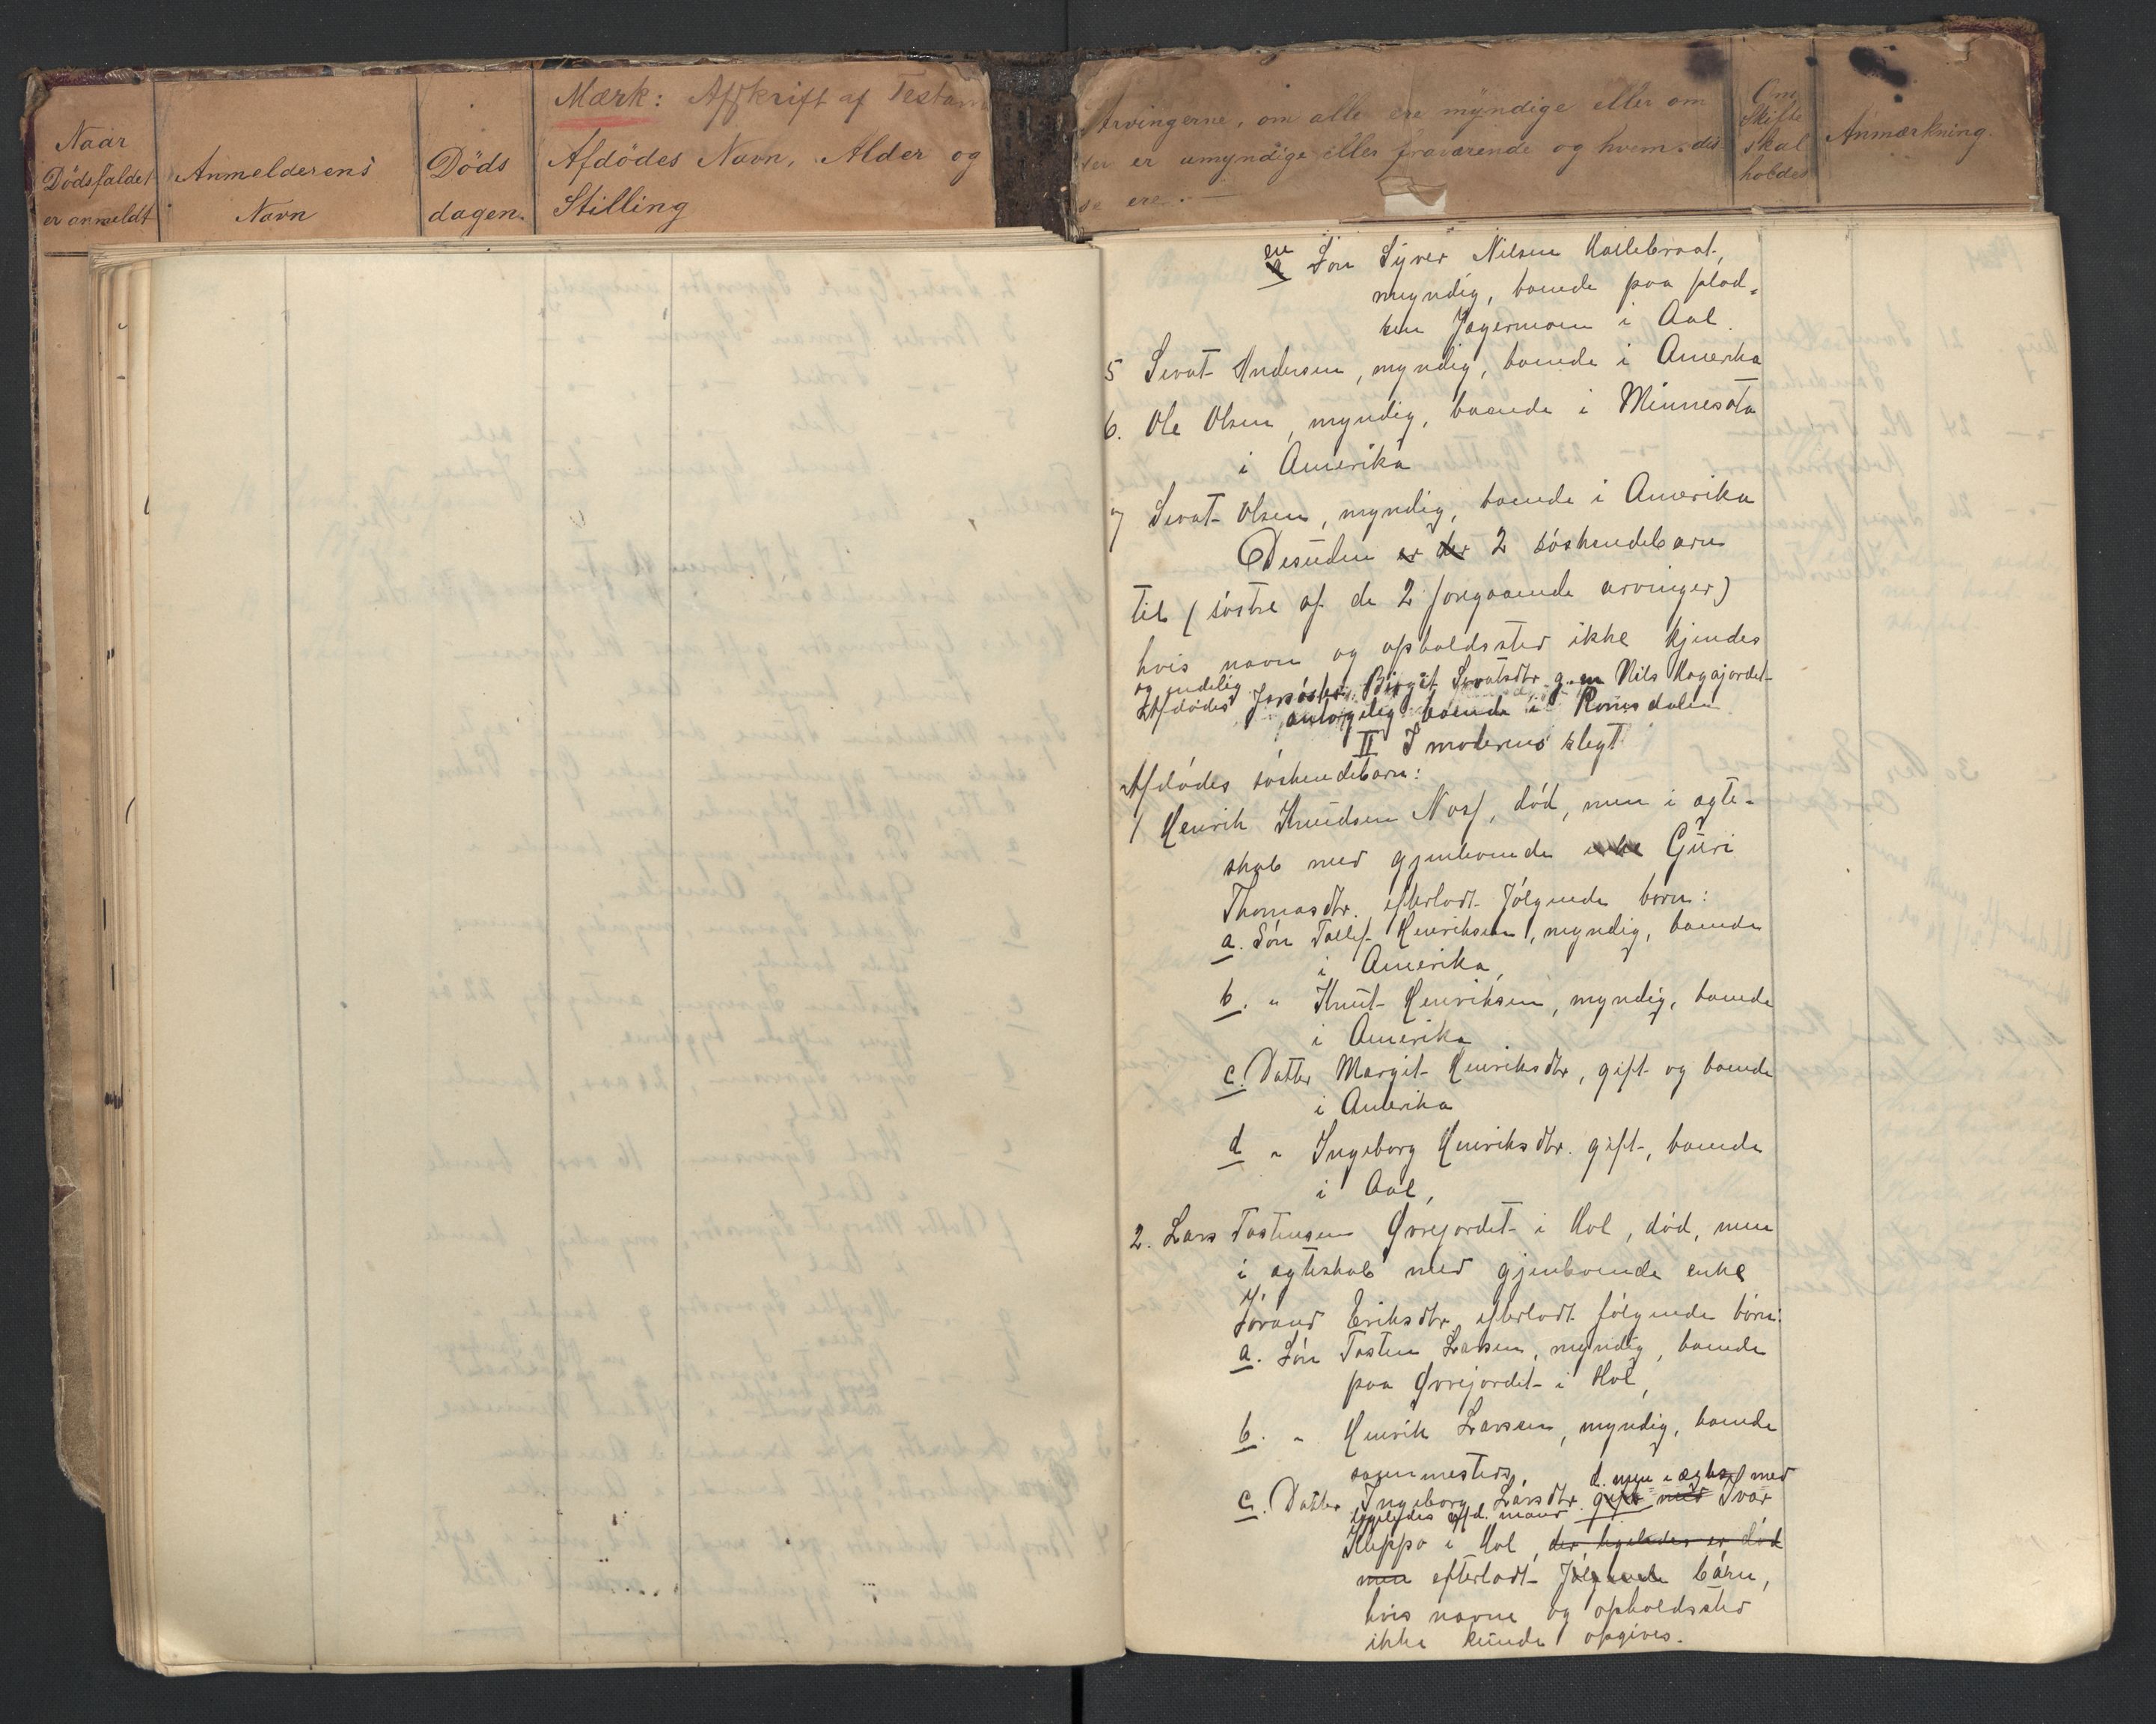 Mærk: Afskrift af Testam
Naar
Dödsfaldet
er anmeldt
Anmelderens
Navn
Döds
dagen.
Afdödes Navn, Alder og
Stilling
Arvingerne, om alle ere myndige eller om
der er umyndige eller fraværende og hvem dis-
se ere.
Om
Skifte
skal
holdes
Anmærkning.
en
Søn Syver Nilsen Kallebraat,
myndig, boende paa plad-
sen Jægermoen i Aal.
5 Sevat Andersen, myndig, boende i Amerika
6. Ole Olsen, myndig, boende i Minnesota
i Amerika
7 Sevat Olsen, myndig, boende i Amerika
Desuden er der 2 söskendebarn
til (söstre af de 2 foregaaende arvinger)
hvis navn og opholdssted ikke kjendes
og endelig
Afdødes farsöster Birgit Sevatsdtr g. m Nils Hagajordet
antagelig boende i Romsdalen
II I moderens slegt
Afdödes söskendebarn:
1 Henrik Knudsen Næs, död, men i ægte-
skab med gjenboende enke Guri
Thomasdtr. efterladt fölgende born:
a. Sön Tollef Henriksen, myndig, boende
i Amerika,
b. " Knut Henriksen, myndig, boende
i Amerika
c. Datter Margit Henriksdtr, gift og boende
i Amerika
d " Ingeborg Henriksdtr. gift, boende
i Aal,
2. Lars Tostensen Øvrejordet i Hol, död, men
i ægteskab med gjenboende enke
Jörand Eriksdtr. efterladt fölgende börn:
a. Sön Tosten Larsen, myndig, boende
paa Øvrejordet i Hol,
b. " Henrik Larsen, myndig, boende
sammesteds,
d. men i ægtesk med
c. Datter Ingeborg Larsdtr. gift med Ivar
ligeledes afd. mand
Kleppo i Hol, der ligeledes er död
men efterladt fölgende börn,
hvis navne og opholdssted
ikke kunde opgives.